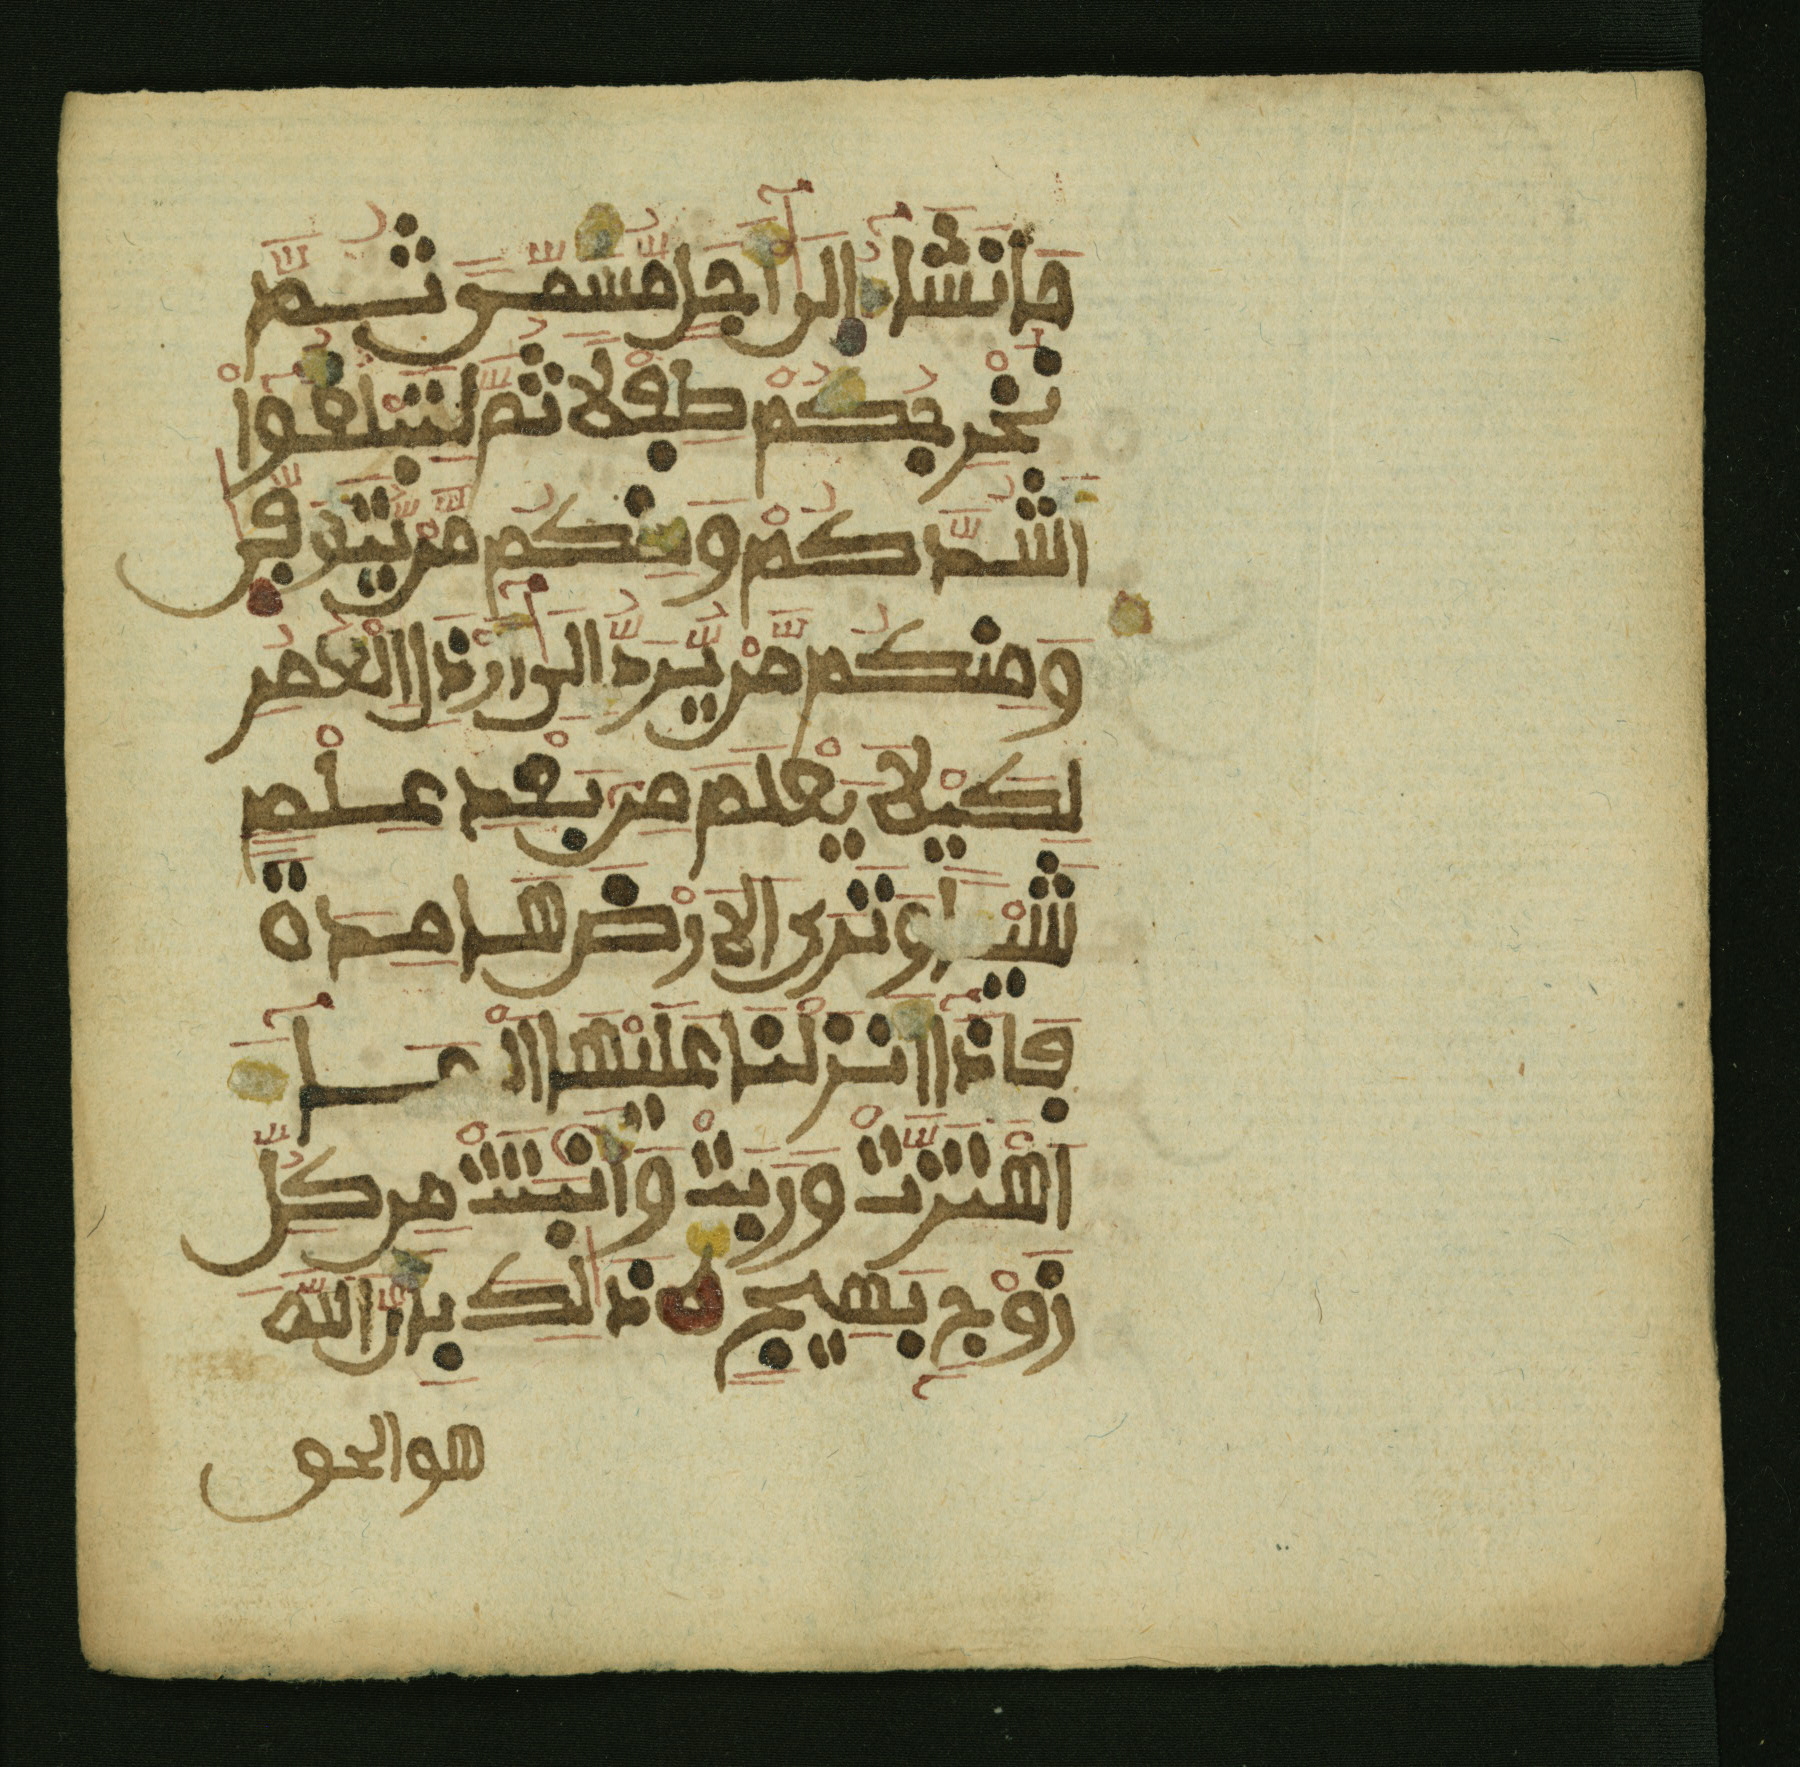 مَا نَشَآءُ إِلَىٰٓ أَجَلٍ مُّسَمًّى ثُمَّ
نُخْرِجُكُمْ طِفْلًا ثُمَّ لِتَبْلُغُوٓاْ
أَشُدَّكُمْ وَمِنكُم مَّنْ يُّتَوَفّٰى
وَمِنكُم مَّنْ يُّرَدُّ إِلَىٰٓ أَرْذَلِ اِ۬لْعُمُرِ
لِكَيْلَا يَعْلَمَ مِنۢ بَعْدِ عِلْمٍ
شَيْـًٔا وَتَرَى اَ۬لَارْضَ هَامِدَةً
فَإِذَآ أَنزَلْنَا عَلَيْهَا اَ۬لْمَآءَ
اَ۪هْتَزَّتْ وَرَبَتْ وَأَنۢبَتَتْ مِن كُلِّ
زَوْجٍۭ بَهِيجٍ ذَٰلِكَ بِأَنَّ اَ۬للَّهَ
هو الحق